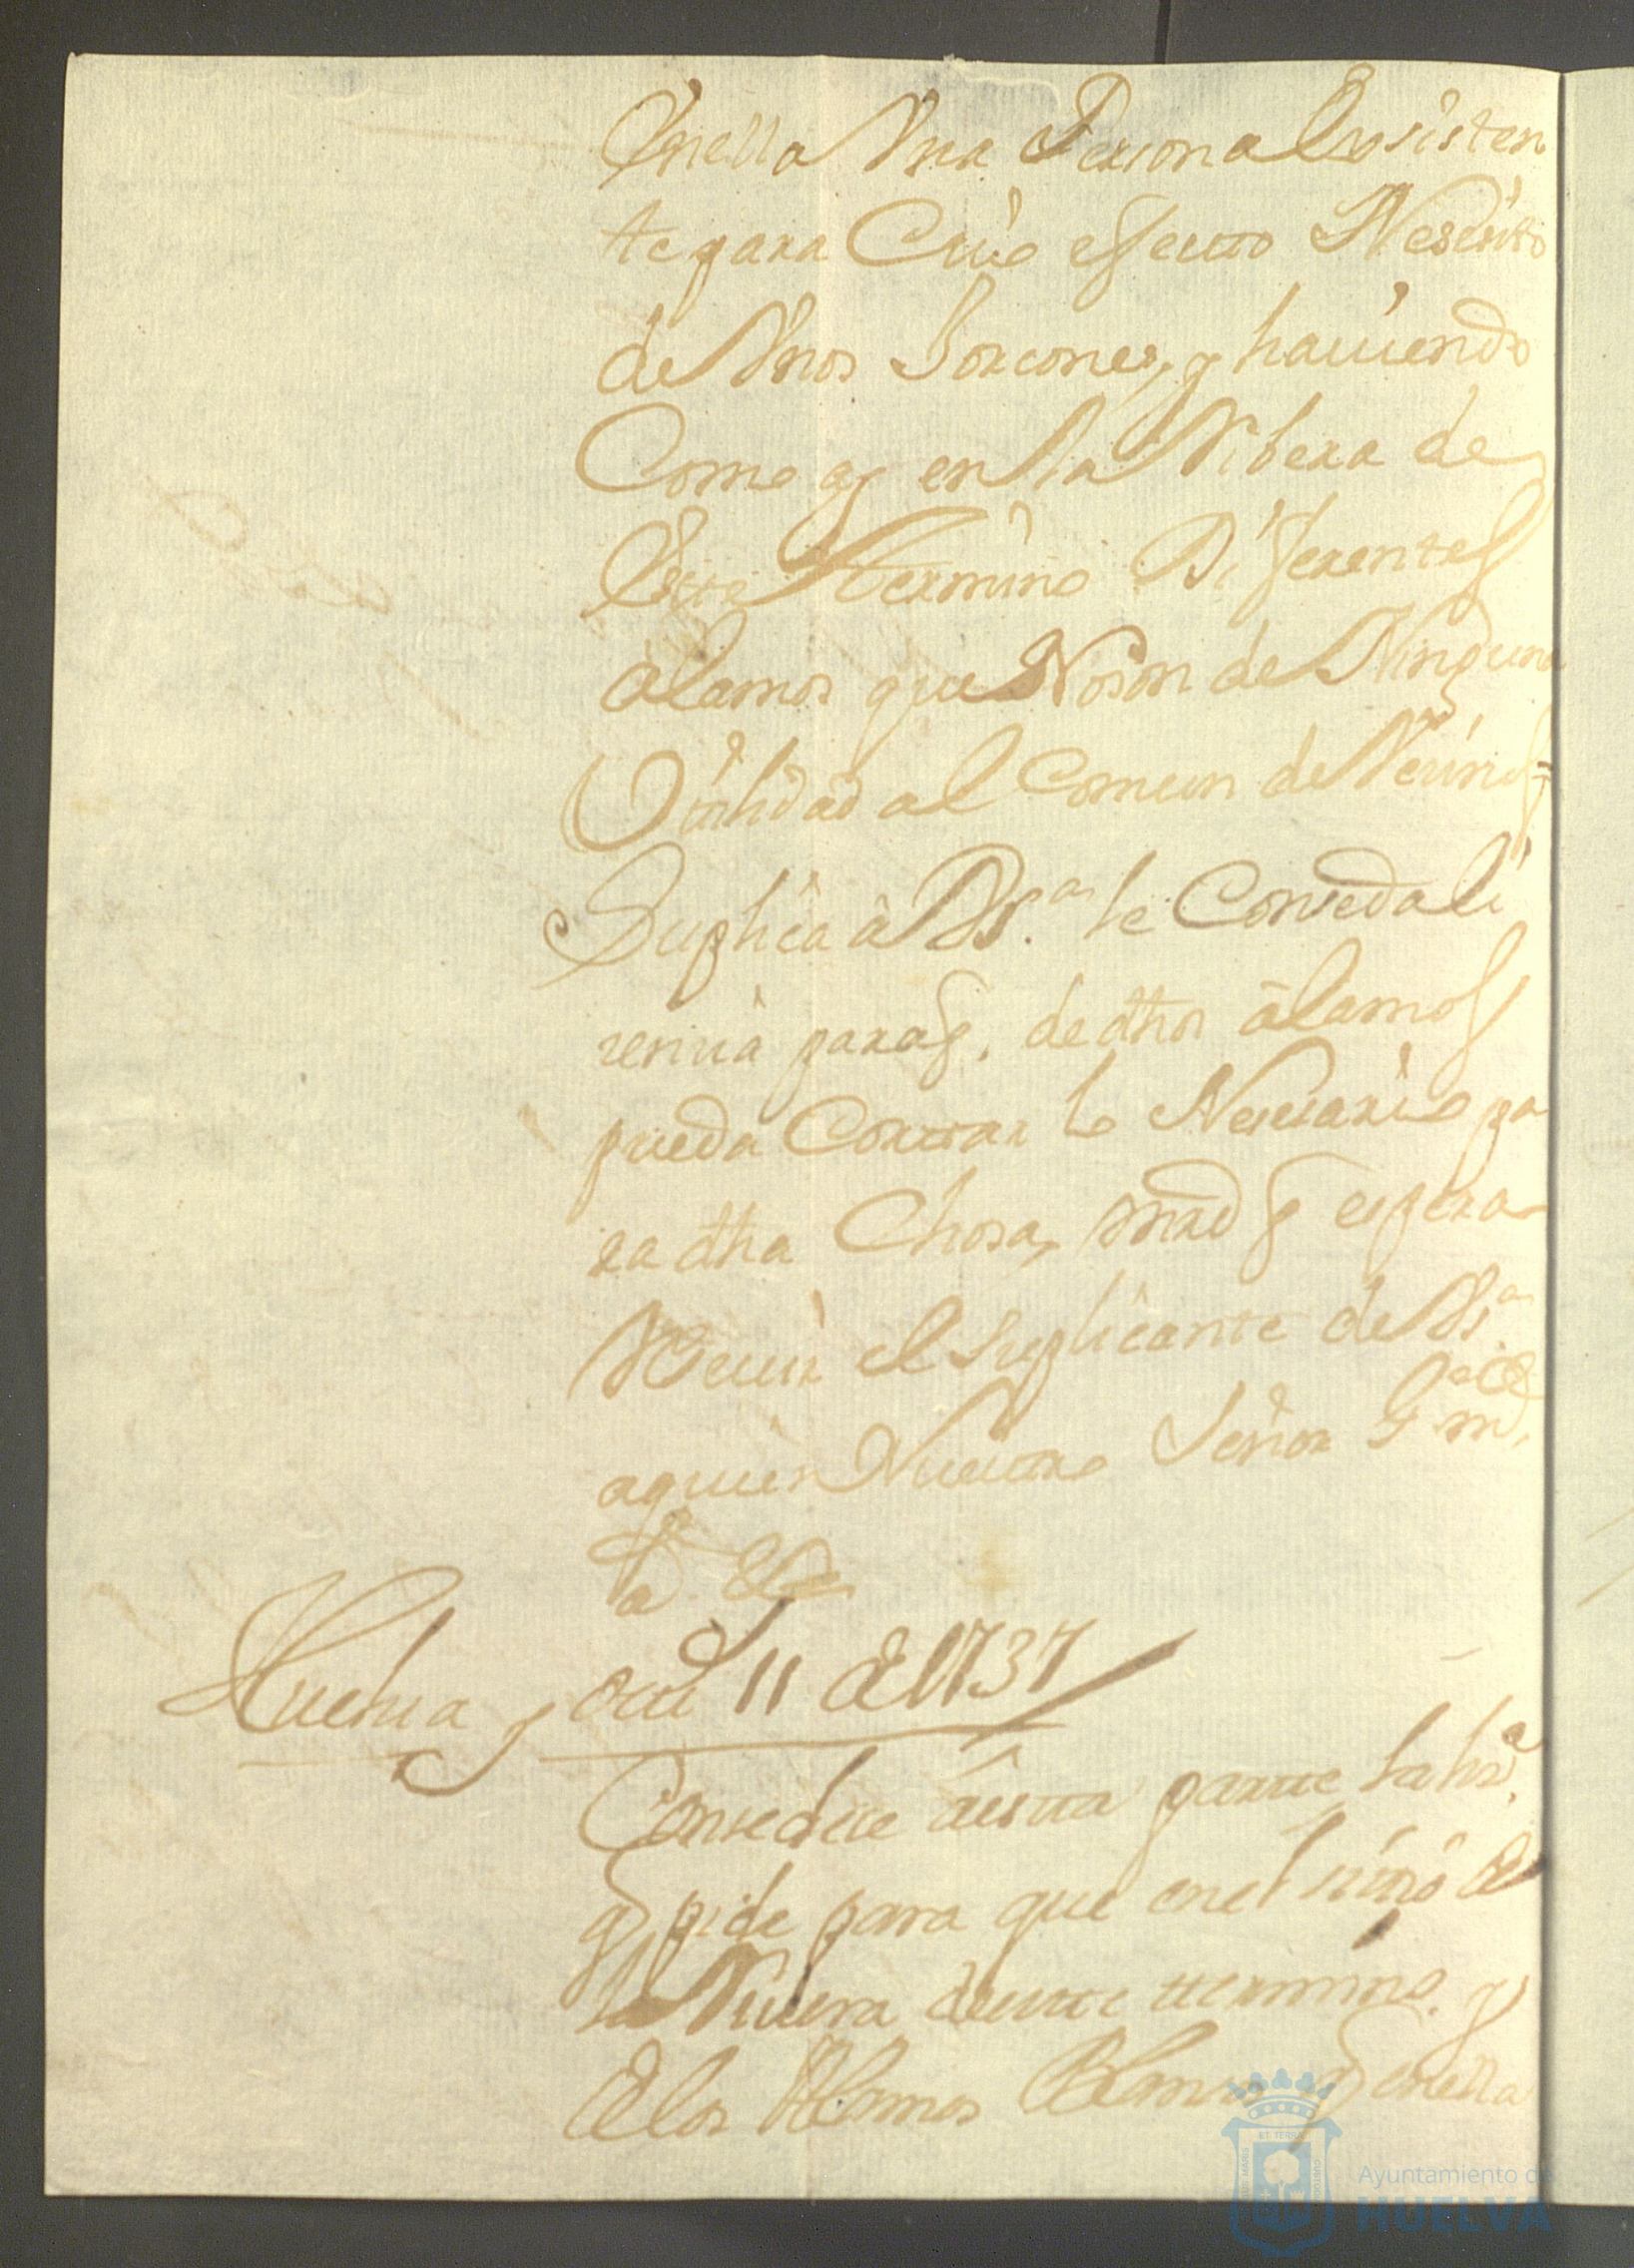 Enella Vna Persona Existen
te para Cuio efecto Nesesito
de Vnos Horcones, y haviendo
Como ay en la Ribera de
Este Termino Diferentes
alamos que No son de Ninguna
Vtilidad al Comun de Vecinos
Suplica â VSª. le Conseda li
zencia para q. de dhos âlamos
pueda Cortar lo Nesesario pa
ra dha Chosa, mrd q espera
Recivir el Suplicante de VSª
aquien Nuestro Señor
aˢ &ª
Huelva y Oct 11 de 1737
Consedese âesta parte la liz.ª
q pide para que enel sitio de
la Rivera deeste termino y
de los Alamos Blancos q enella
Ayuntamiento de
HUELVA